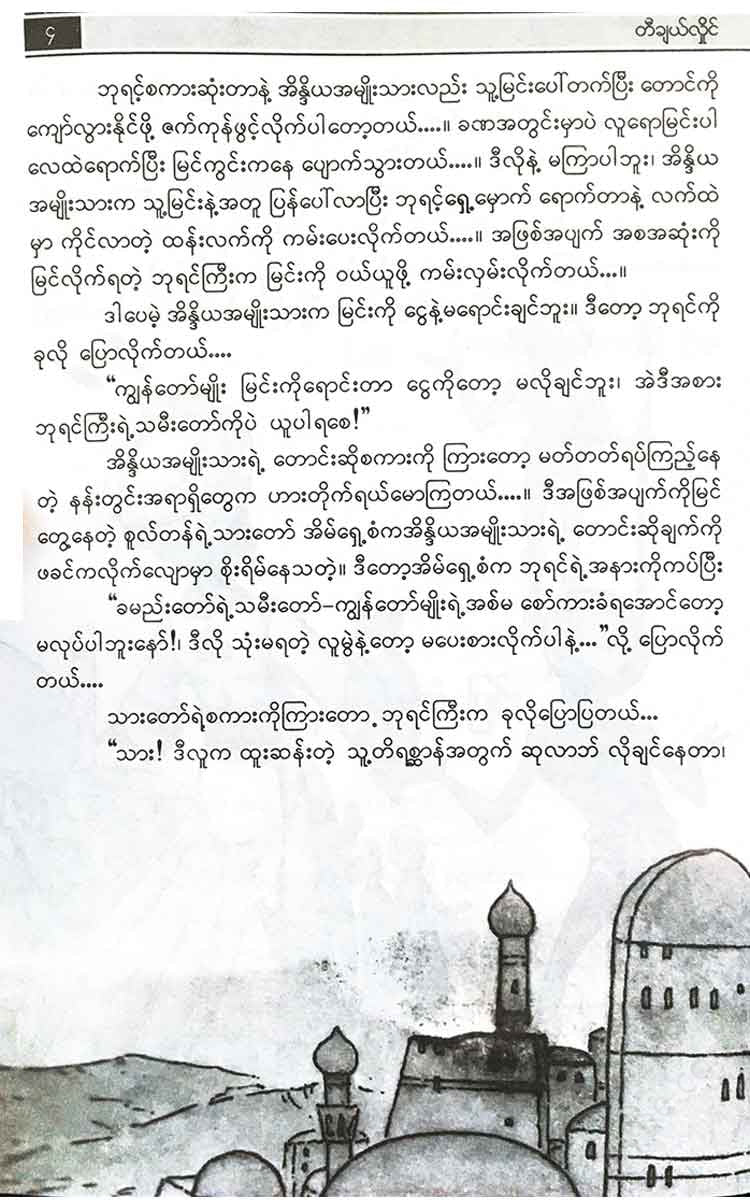 ၄
တီချယ်လှိုင်
ဘုရင့်စကားဆုံးတာနဲ့ အိန္ဒိယအမျိုးသားလည်း သူ့မြင်းပေါ်တက်ပြီး တောင်ကို
ကျော်လွှားနိုင်ဖို့ ဇက်ကုန်ဖွင့်လိုက်ပါတော့တယ်....။ ခဏအတွင်းမှာပဲ လူရောမြင်းပါ
လေထဲရောက်ပြီး မြင်ကွင်းကနေ ပျောက်သွားတယ်....။ ဒီလိုနဲ့ မကြာပါဘူး၊ အိန္ဒိယ
အမျိုးသားက သူ့မြင်းနဲ့အတူ ပြန်ပေါ်လာပြီး ဘုရင့်ရှေ့မှောက် ရောက်တာနဲ့ လက်ထဲ
မှာ ကိုင်လာတဲ့ ထန်းလက်ကို ကမ်းပေးလိုက်တယ်....။ အဖြစ်အပျက် အစအဆုံးကို
မြင်လိုက်ရတဲ့ ဘုရင်ကြီးက မြင်းကို ဝယ်ယူဖို့ ကမ်းလှမ်းလိုက်တယ်...။
ဒါပေမဲ့ အိန္ဒိယအမျိုးသားက မြင်းကို ငွေနဲ့မရောင်းချင်ဘူး။ ဒီတော့ ဘုရင်ကို
ခုလို ပြောလိုက်တယ်....
“ကျွန်တော်မျိုး မြင်းကိုရောင်းတာ ငွေကိုတော့ မလိုချင်ဘူး၊ အဲဒီအစား
ဘုရင်ကြီးရဲ့သမီးတော်ကိုပဲ ယူပါရစေ!”
အိန္ဒိယအမျိုးသားရဲ့ တောင်းဆိုစကားကို ကြားတော့ မတ်တတ်ရပ်ကြည့်နေ
တဲ့ နန်းတွင်းအရာရှိတွေက ဟားတိုက်ရယ်မောကြတယ်....။ ဒီအဖြစ်အပျက်ကိုမြင်
တွေ့နေတဲ့ စူလ်တန်ရဲ့သားတော် အိမ်ရှေ့စံကအိန္ဒိယအမျိုးသားရဲ့ တောင်းဆိုချက်ကို
ဖခင်ကလိုက်လျောမှာ စိုးရိမ်နေသတဲ့။ ဒီတော့အိမ်ရှေ့စံက ဘုရင်ရဲ့အနားကိုကပ်ပြီး
“ခမည်းတော်ရဲ့သမီးတော်–ကျွန်တော်မျိုးရဲ့အစ်မ စော်ကားခံရအောင်တော့
မလုပ်ပါဘူးနော်!၊ ဒီလို သုံးမရတဲ့ လူမွဲနဲ့တော့ မပေးစားလိုက်ပါနဲ့...”လို့ ပြောလိုက်
တယ်....
သားတော်ရဲ့စကားကိုကြားတော့ ဘုရင်ကြီးက ခုလိုပြောပြတယ်...
“သား! ဒီလူက ထူးဆန်းတဲ့ သူ့တိရစ္ဆာန်အတွက် ဆုလာဘ် လိုချင်နေတာ၊